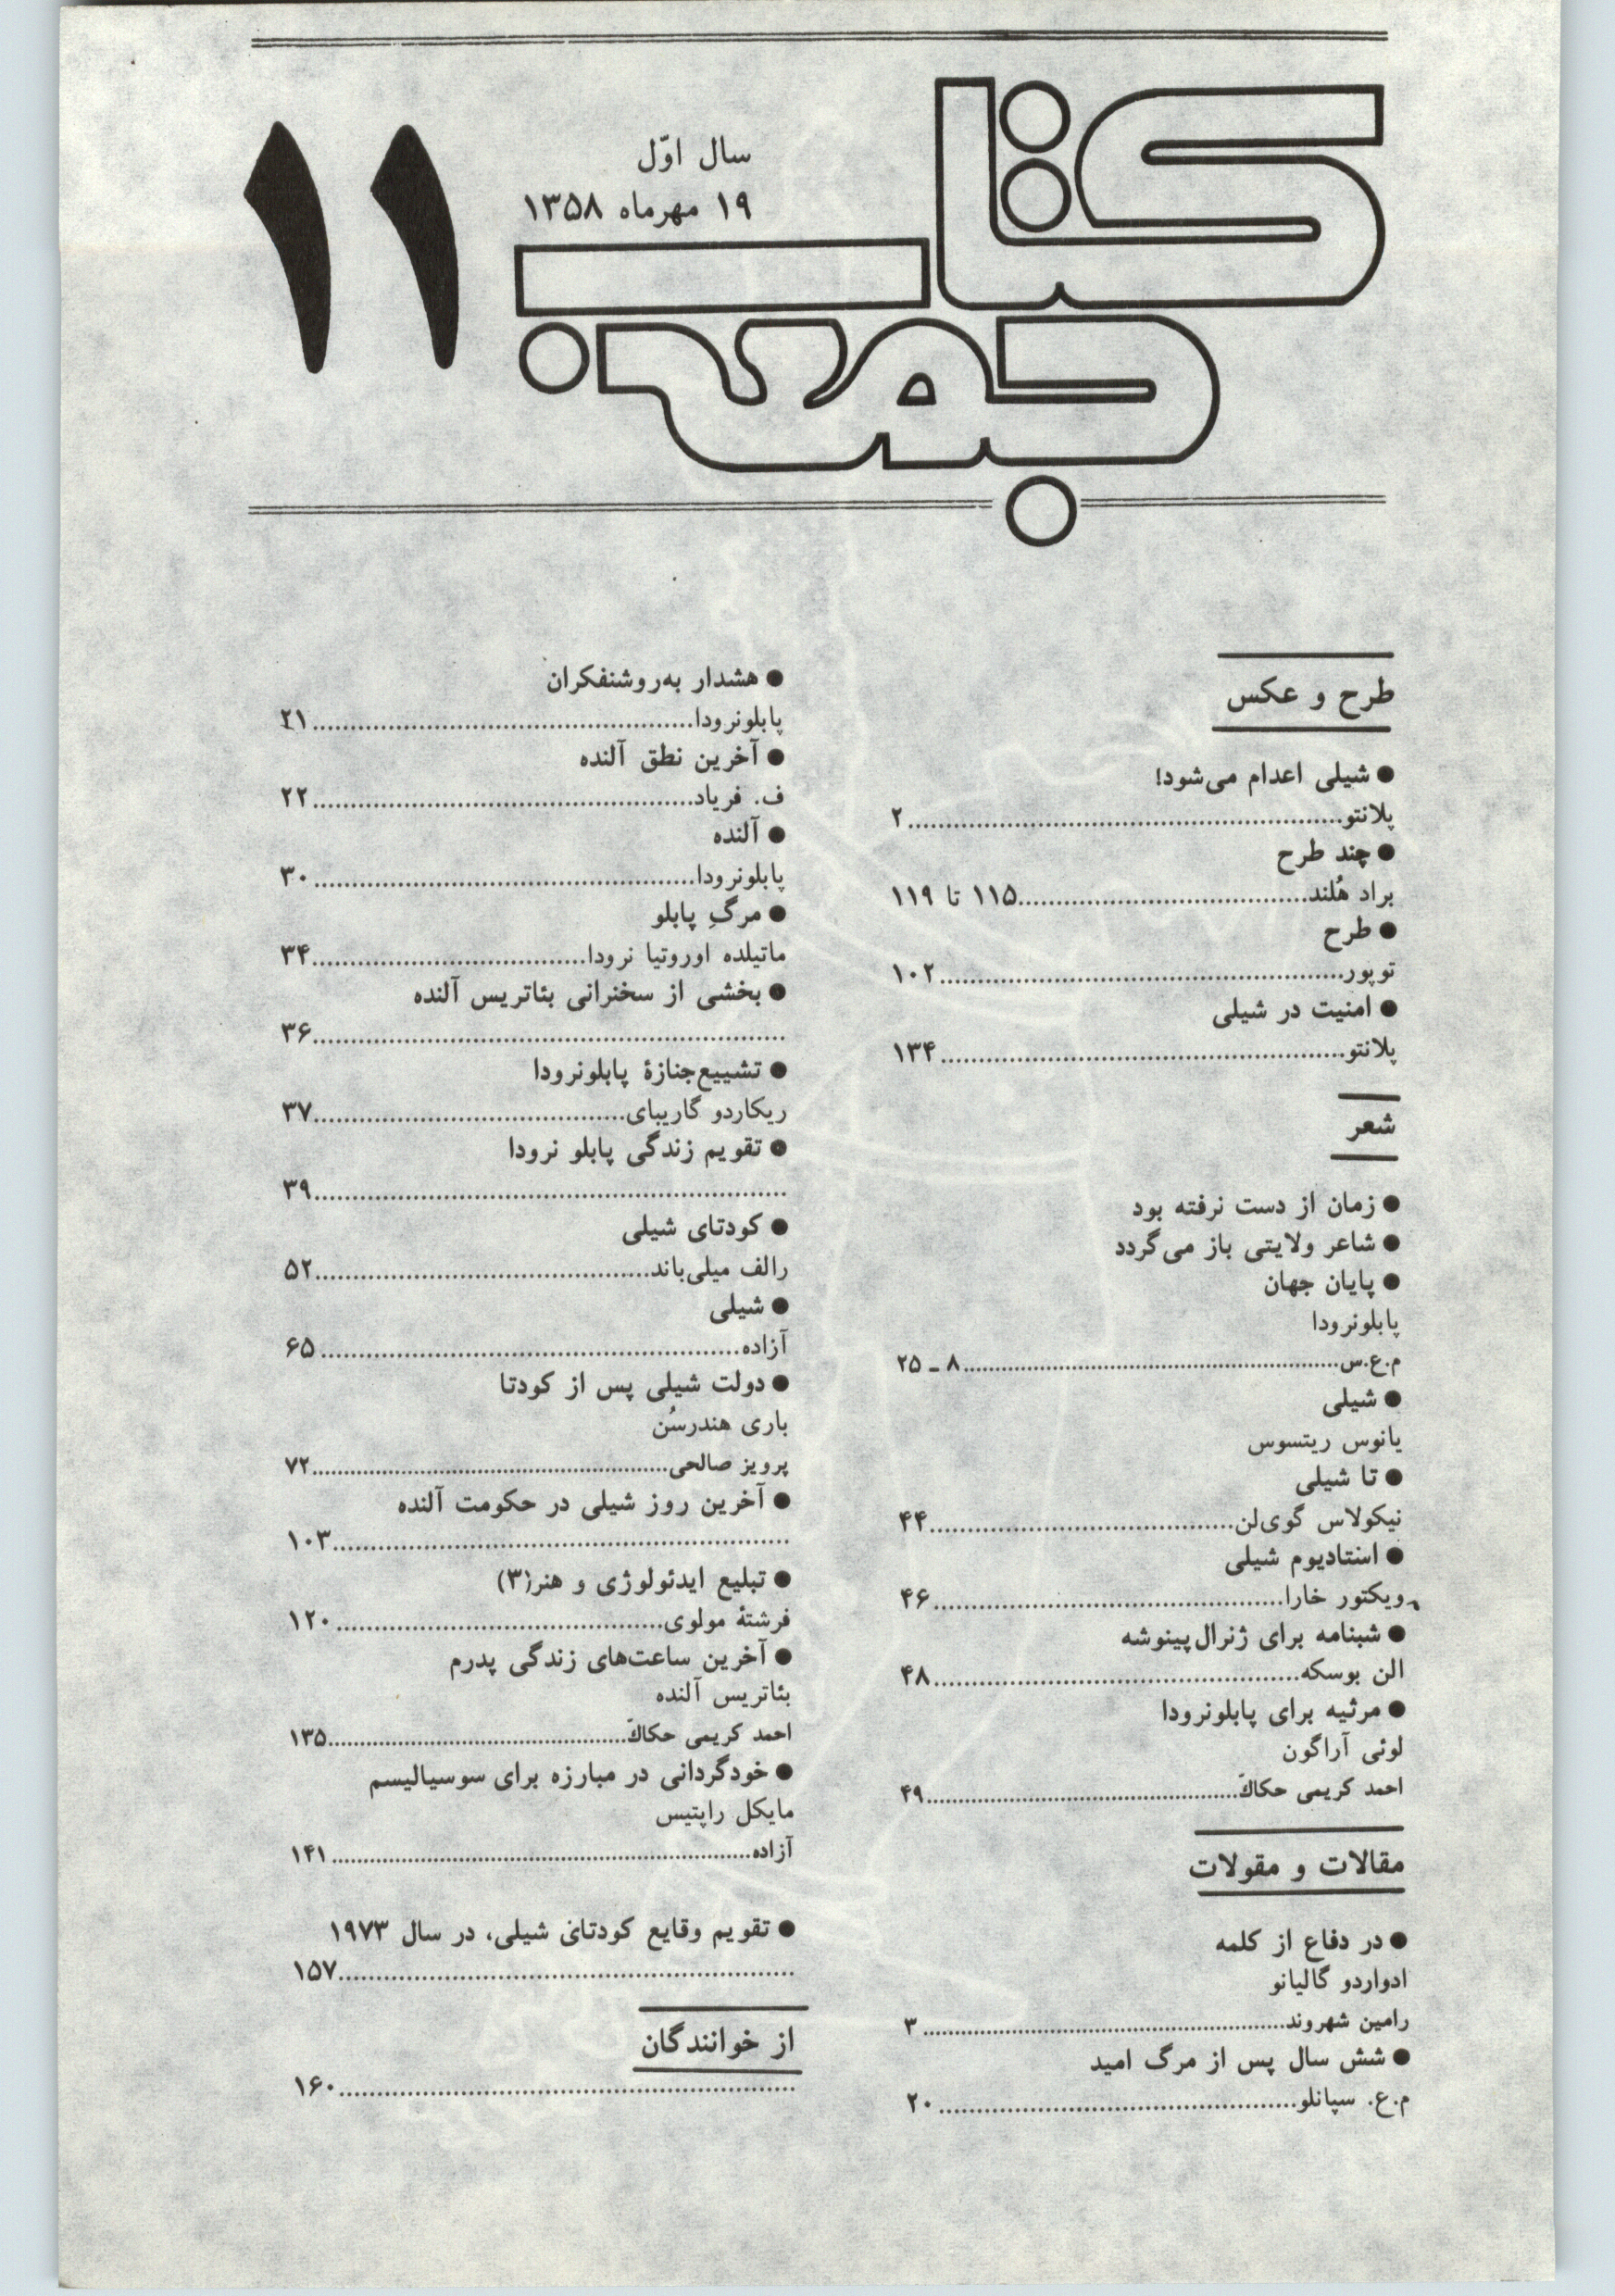 کتاب
جمعه
سال اوّل
۱۹ مهرماه ۱۳۵۸
۱۱
طرح و عکس
● شیلی اعدام می‌شود!
پلانتو........................................................۲
● چند طرح
براد هُلند.....................................۱۱۵ تا ۱۱۹
● طرح
توپور....................................................۱۰۲
● امنیت در شیلی
پلانتو....................................................۱۳۴
شعر
● زمان از دست نرفته بود
● شاعر ولایتی باز می‌گردد
● پایان جهان
پابلونرودا
م.ع.س.................................................۸ ـ ۲۵
● شیلی
یانوس ریتسوس
● تا شیلی
نیکولاس گوی‌لن.......................................۴۴
● استادیوم شیلی
ویکتور خارا.............................................۴۶
● شبنامه برای ژنرال‌پینوشه
الن بوسکه...............................................۴۸
● مرثیه برای پابلونرودا
لوئی آراگون
احمد کریمی حکاکّ........................................۴۹
مقالات و مقولات
● در دفاع از کلمه
ادواردو گالیانو
رامین شهروند...............................................۳
● شش سال پس از مرگ امید
م.ع. سپانلو..............................................۲۰
● هشدار به‌روشنفکران
پابلونرودا.................................................۲۱
● آخرین نطق آلنده
ف. فریاد.................................................۲۲
● آلنده
پابلونرودا.................................................۳۰
● مرگِ پابلو
ماتیلده اوروتیا نرودا...................................۳۴
● بخشی از سخنرانی بئاتریس آلنده
.............................................................۳۶
● تشییع‌جنازهٔ پابلونرودا
ریکاردو گاریبای........................................۳۷
● تقویم زندگی پابلو نرودا
.............................................................۳۹
● کودتای شیلی
رالف میلی‌باند...........................................۵۲
● شیلی
آزاده......................................................۶۵
● دولت شیلی پس از کودتا
باری هندرسُن
پرویز صالحی..............................................۷۲
● آخرین روز شیلی در حکومت آلنده
...........................................................۱۰۳
● تبلیع ایدئولوژی و هنر(۳)
فرشتهٔ مولوی..........................................۱۲۰
● آخرین ساعت‌های زندگی پدرم
بئاتریس آلنده
احمد کریمی حکاکّ......................................۱۳۵
● خودگردانی در مبارزه برای سوسیالیسم
مایکل راپتیس
آزاده......................................................۱۴۱
● تقویم وقایع کودتای شیلی، در سال ۱۹۷۳
...........................................................۱۵۷
از خوانندگان
...........................................................۱۶۰